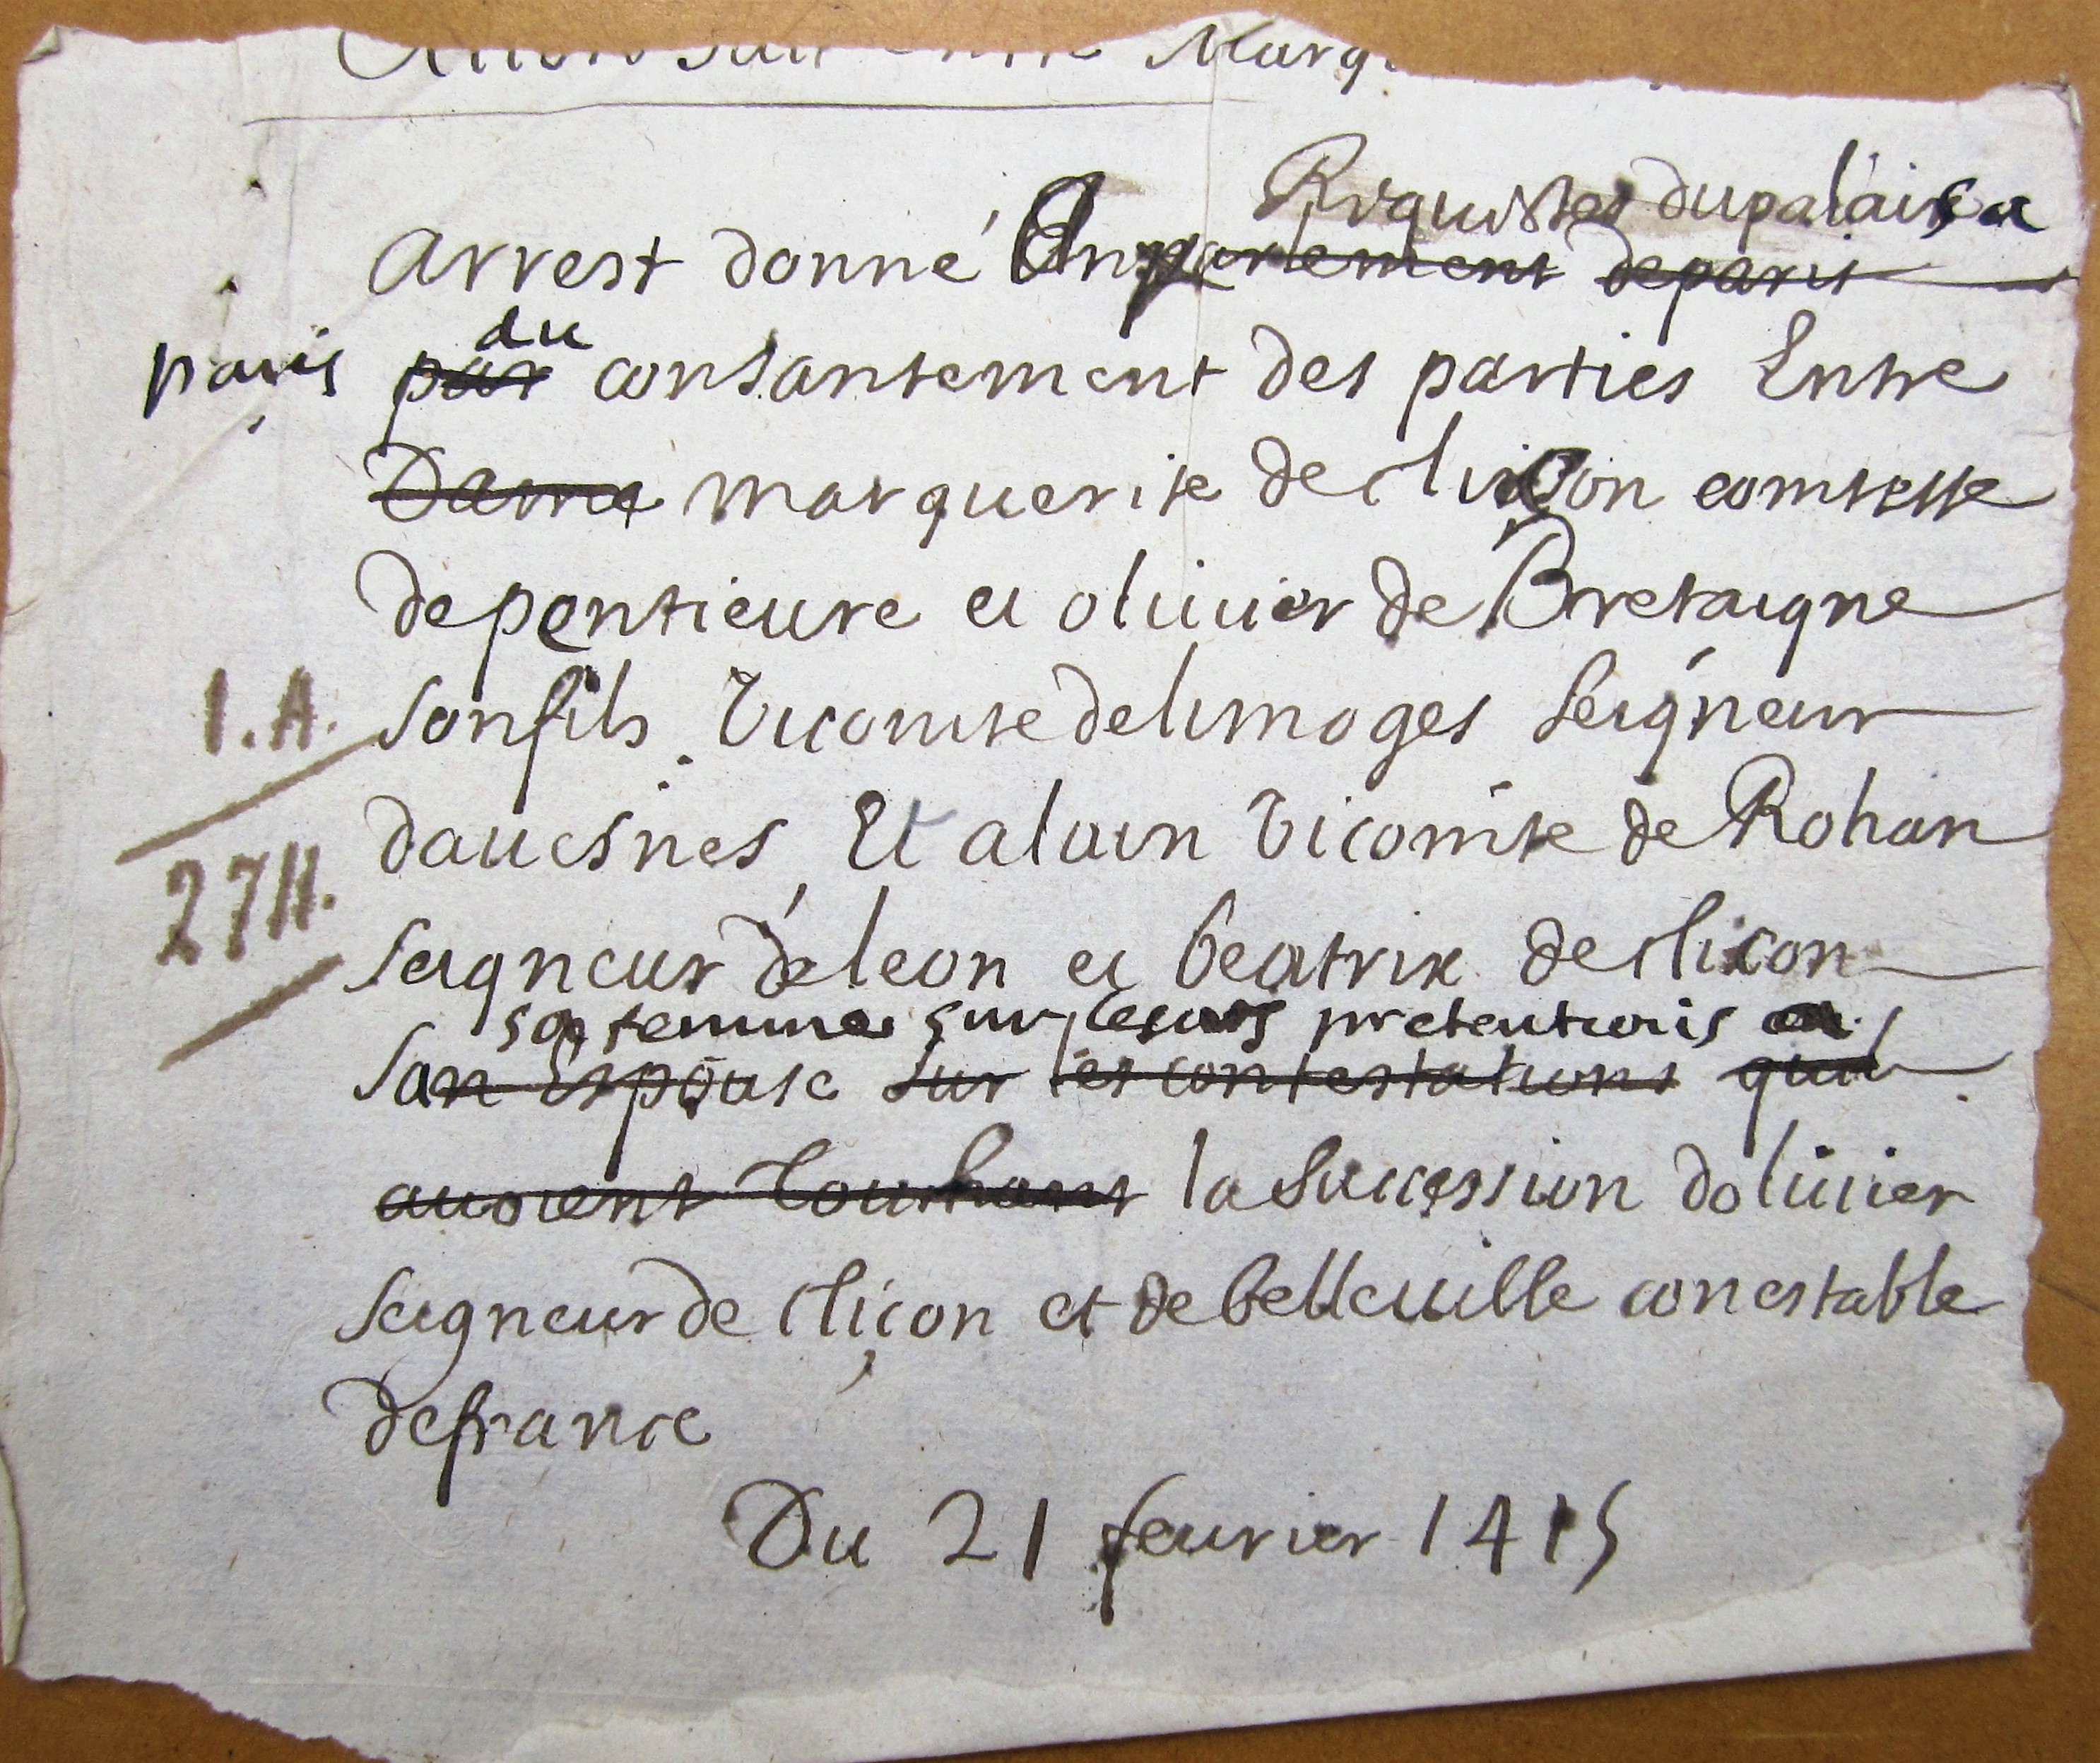 Marq
Requestes du palais a
arrest donné En parlement de paris
du
paris par consantement des parties Entre
Dame marguerite de clisson comtesse
de pentieure et oliuier de Bretaigne
1.A. son fils Vicomte de limoges seigneur
dauesnes Et alain Vicomte de Rohan
27H.
seigneur de leon et beatrix de clicon
sa femme sur leurs pretentions a
san Espouse sur les contestations quil
auoient touchant la succession doliuier
seigneur de cliçon et de belleuille conestable
de france
Du 21 feurier 1415